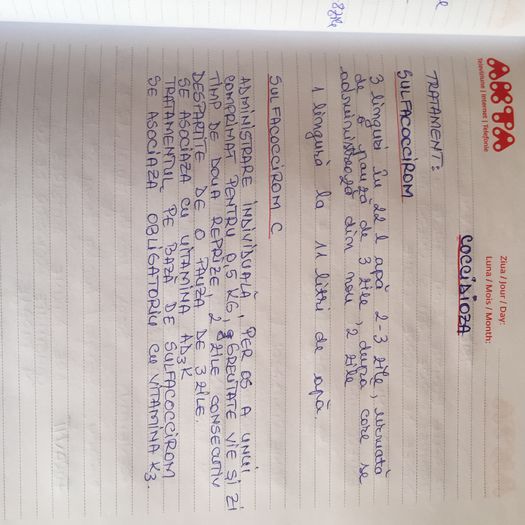 AKTA
Televiziune | Internet | Telefonie
Ziua / Jour / Day:
Luna / Mois / Month:
COCCIDIOZA
TRATAMENT:
SULFACOCCIROM
3 linguri în 22 l apă 2-3 zile, urmată
de o pauză de 3 zile, după care se
administrează din nou, 2 zile
1 lingură la 11 litri de apă.
SULFACOCCIROM C
ADMINISTRARE INDIVIDUALĂ, PER OS A UNUI
COMPRIMAT PENTRU 0,5 KG, GREUTATE VIE ȘI ZI
TIMP DE DOUA REPRIZE, 2 ZILE CONSECUTIV
DESPARTITE DE O PAUZA DE 3 ZILE.
SE ASOCIAZA CU VITAMINA AD3K
TRATAMENTUL PE BAZĂ DE SULFACOCCIROM
SE ASOCIAZA OBLIGATORIU CU VITAMINA K3.
zile